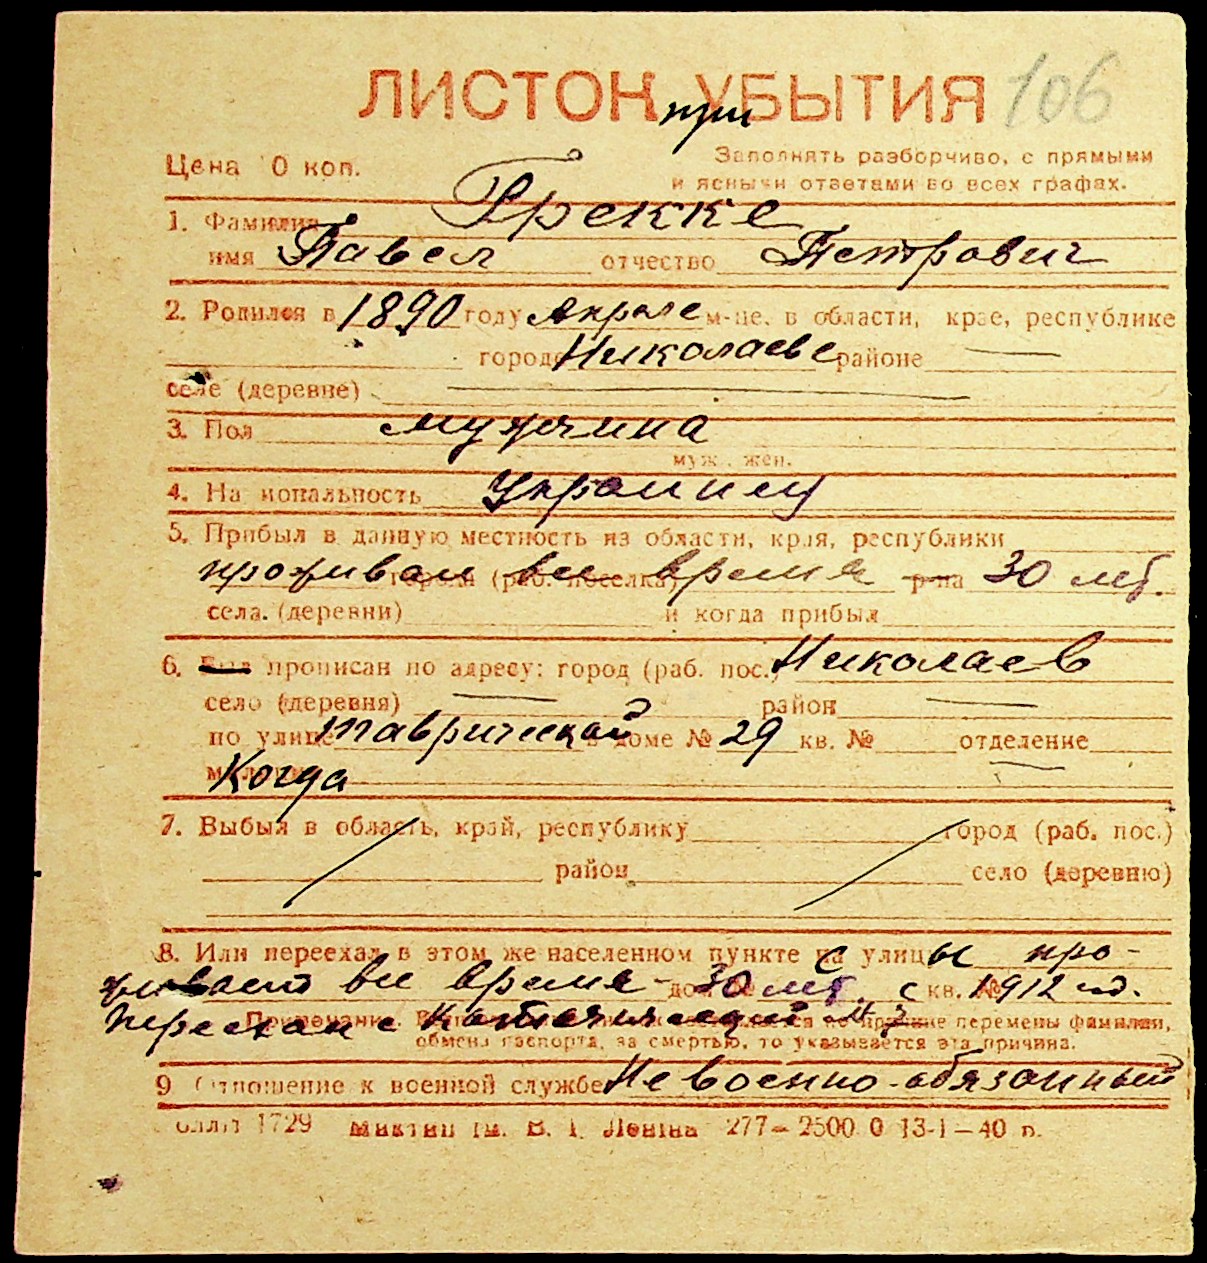 ЛИСТОК УБЫТИЯ 106
при
Цена 10 коп. Заполнять разборчиво, с прямыми
и ясными ответами во всех графах.
1. Фамилия Грекке
имя Павел отчество Петрович
2. Родился в 1890 году Апреле м-це, в области, крае, республике
городе Николаеве районе —
селе (деревне) —
3. Пол мужчина
муж., жен.
4. Национальность Украинец
5. Прибыл в данную местность из области, края, республики
проживал все время города (раб. поселка) р-на 30 лет.
села (деревни) и когда прибыл
6. Был прописан по адресу: город (раб. пос.) Николаев
село (деревня) — район —
по улице Таврической в доме № 29 кв. № отделение —
милиции Когда
7. Выбыл в область, край, республику город (раб. пос.)
район село (деревню)
8. Или переехал в этом же населенном пункте с улицы про-
живает все время - 30 лет. с кв. № 1912 год.
Переехал с № 7
Примечание. перемены фамилии,
обмена паспорта, за смертью, то указывается эта причина.
9 Отношение к военной службе Не военно-обязанный
1729 ім. В. І. Леніна 277–2500 0 13-І–40 р.